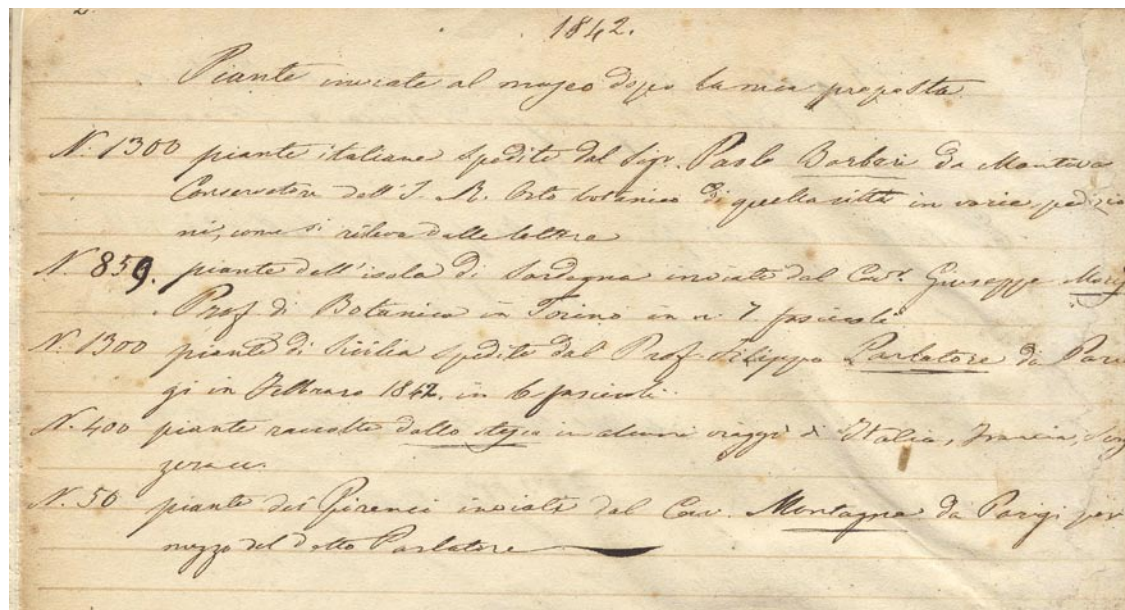 2.
1842.
Piante inviate al museo dopo la mia proposta.
N. 1300 piante italiane spedite dal Sigr. Paolo Barbieri da Mantova
Conservatore dell'I. R. Orto botanico di quella città in varie spedizio
ni, come si rileva dalle lettere
N. 859. piante dell'isola di Sardegna inviate dal Cavr. Giuseppe Moris
Prof. di Botanica in Torino in n. 7 fascicoli
N. 1300 piante di Sicilia spedite dal Prof. Filippo Parlatore da Pari
gi in Febbraro 1842. in 6 fascicoli.
N. 400 piante raccolte dallo stesso in alcuni viaggi di Italia, Francia, Sviz
zera ec.
N. 50 piante dei Pirenei inviate dal Cav. Montagne da Parigi per
mezzo del detto Parlatore